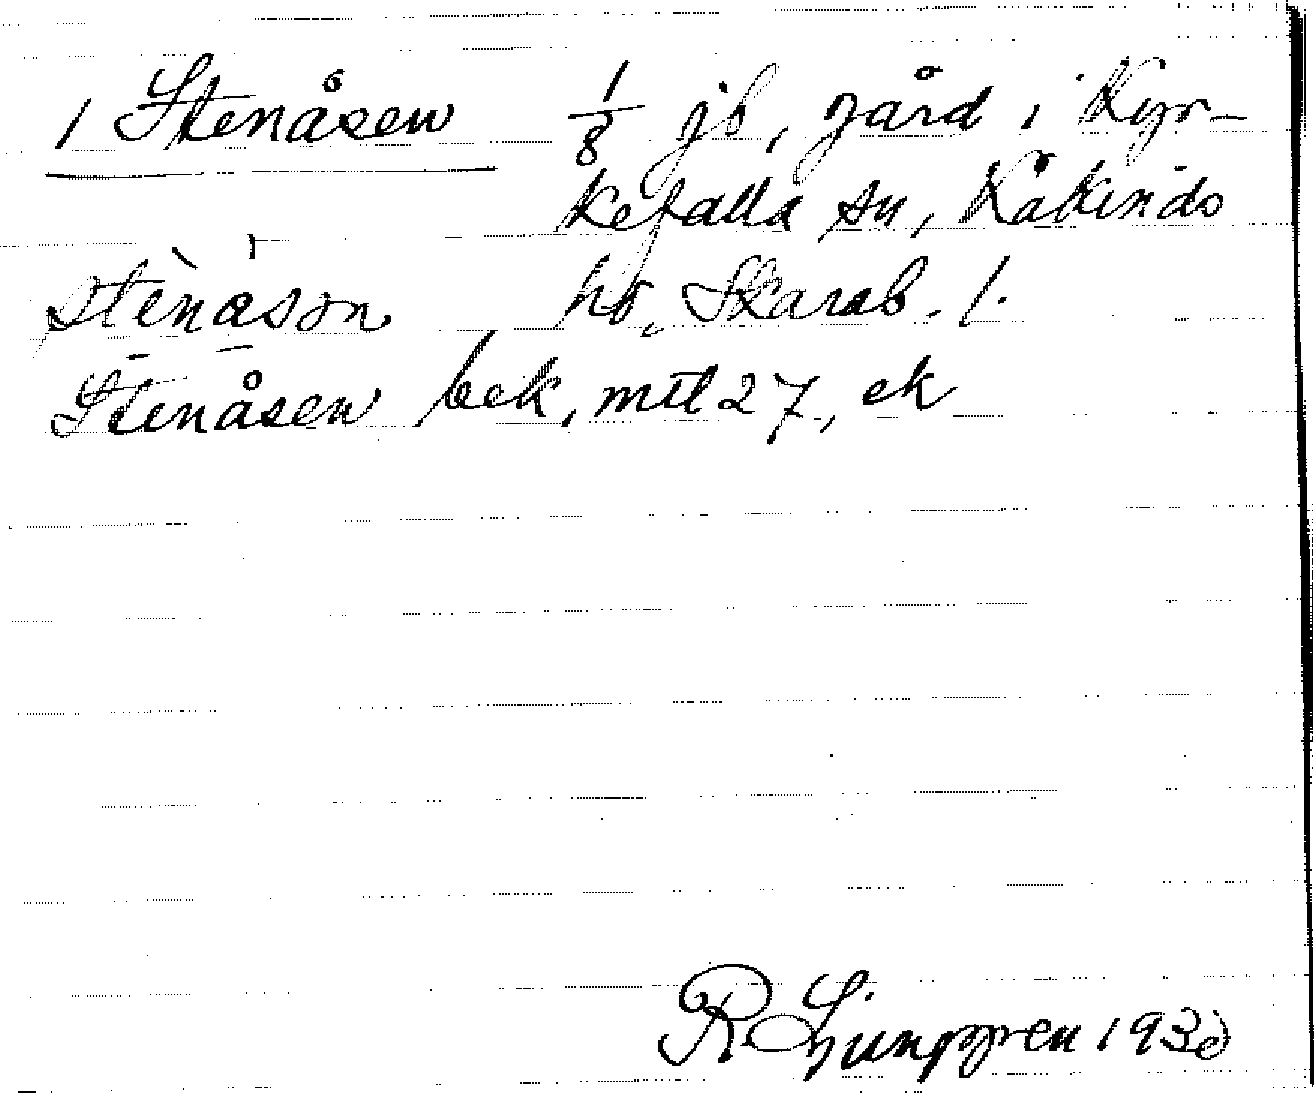 1 Stenåsen 1/8 jb, gård i Kyr-
kefalla sn, Kåkinds
stènåson hd, Skarab. l.
Stenåsen bek, mtl 27, ek
R Ljunggren 193